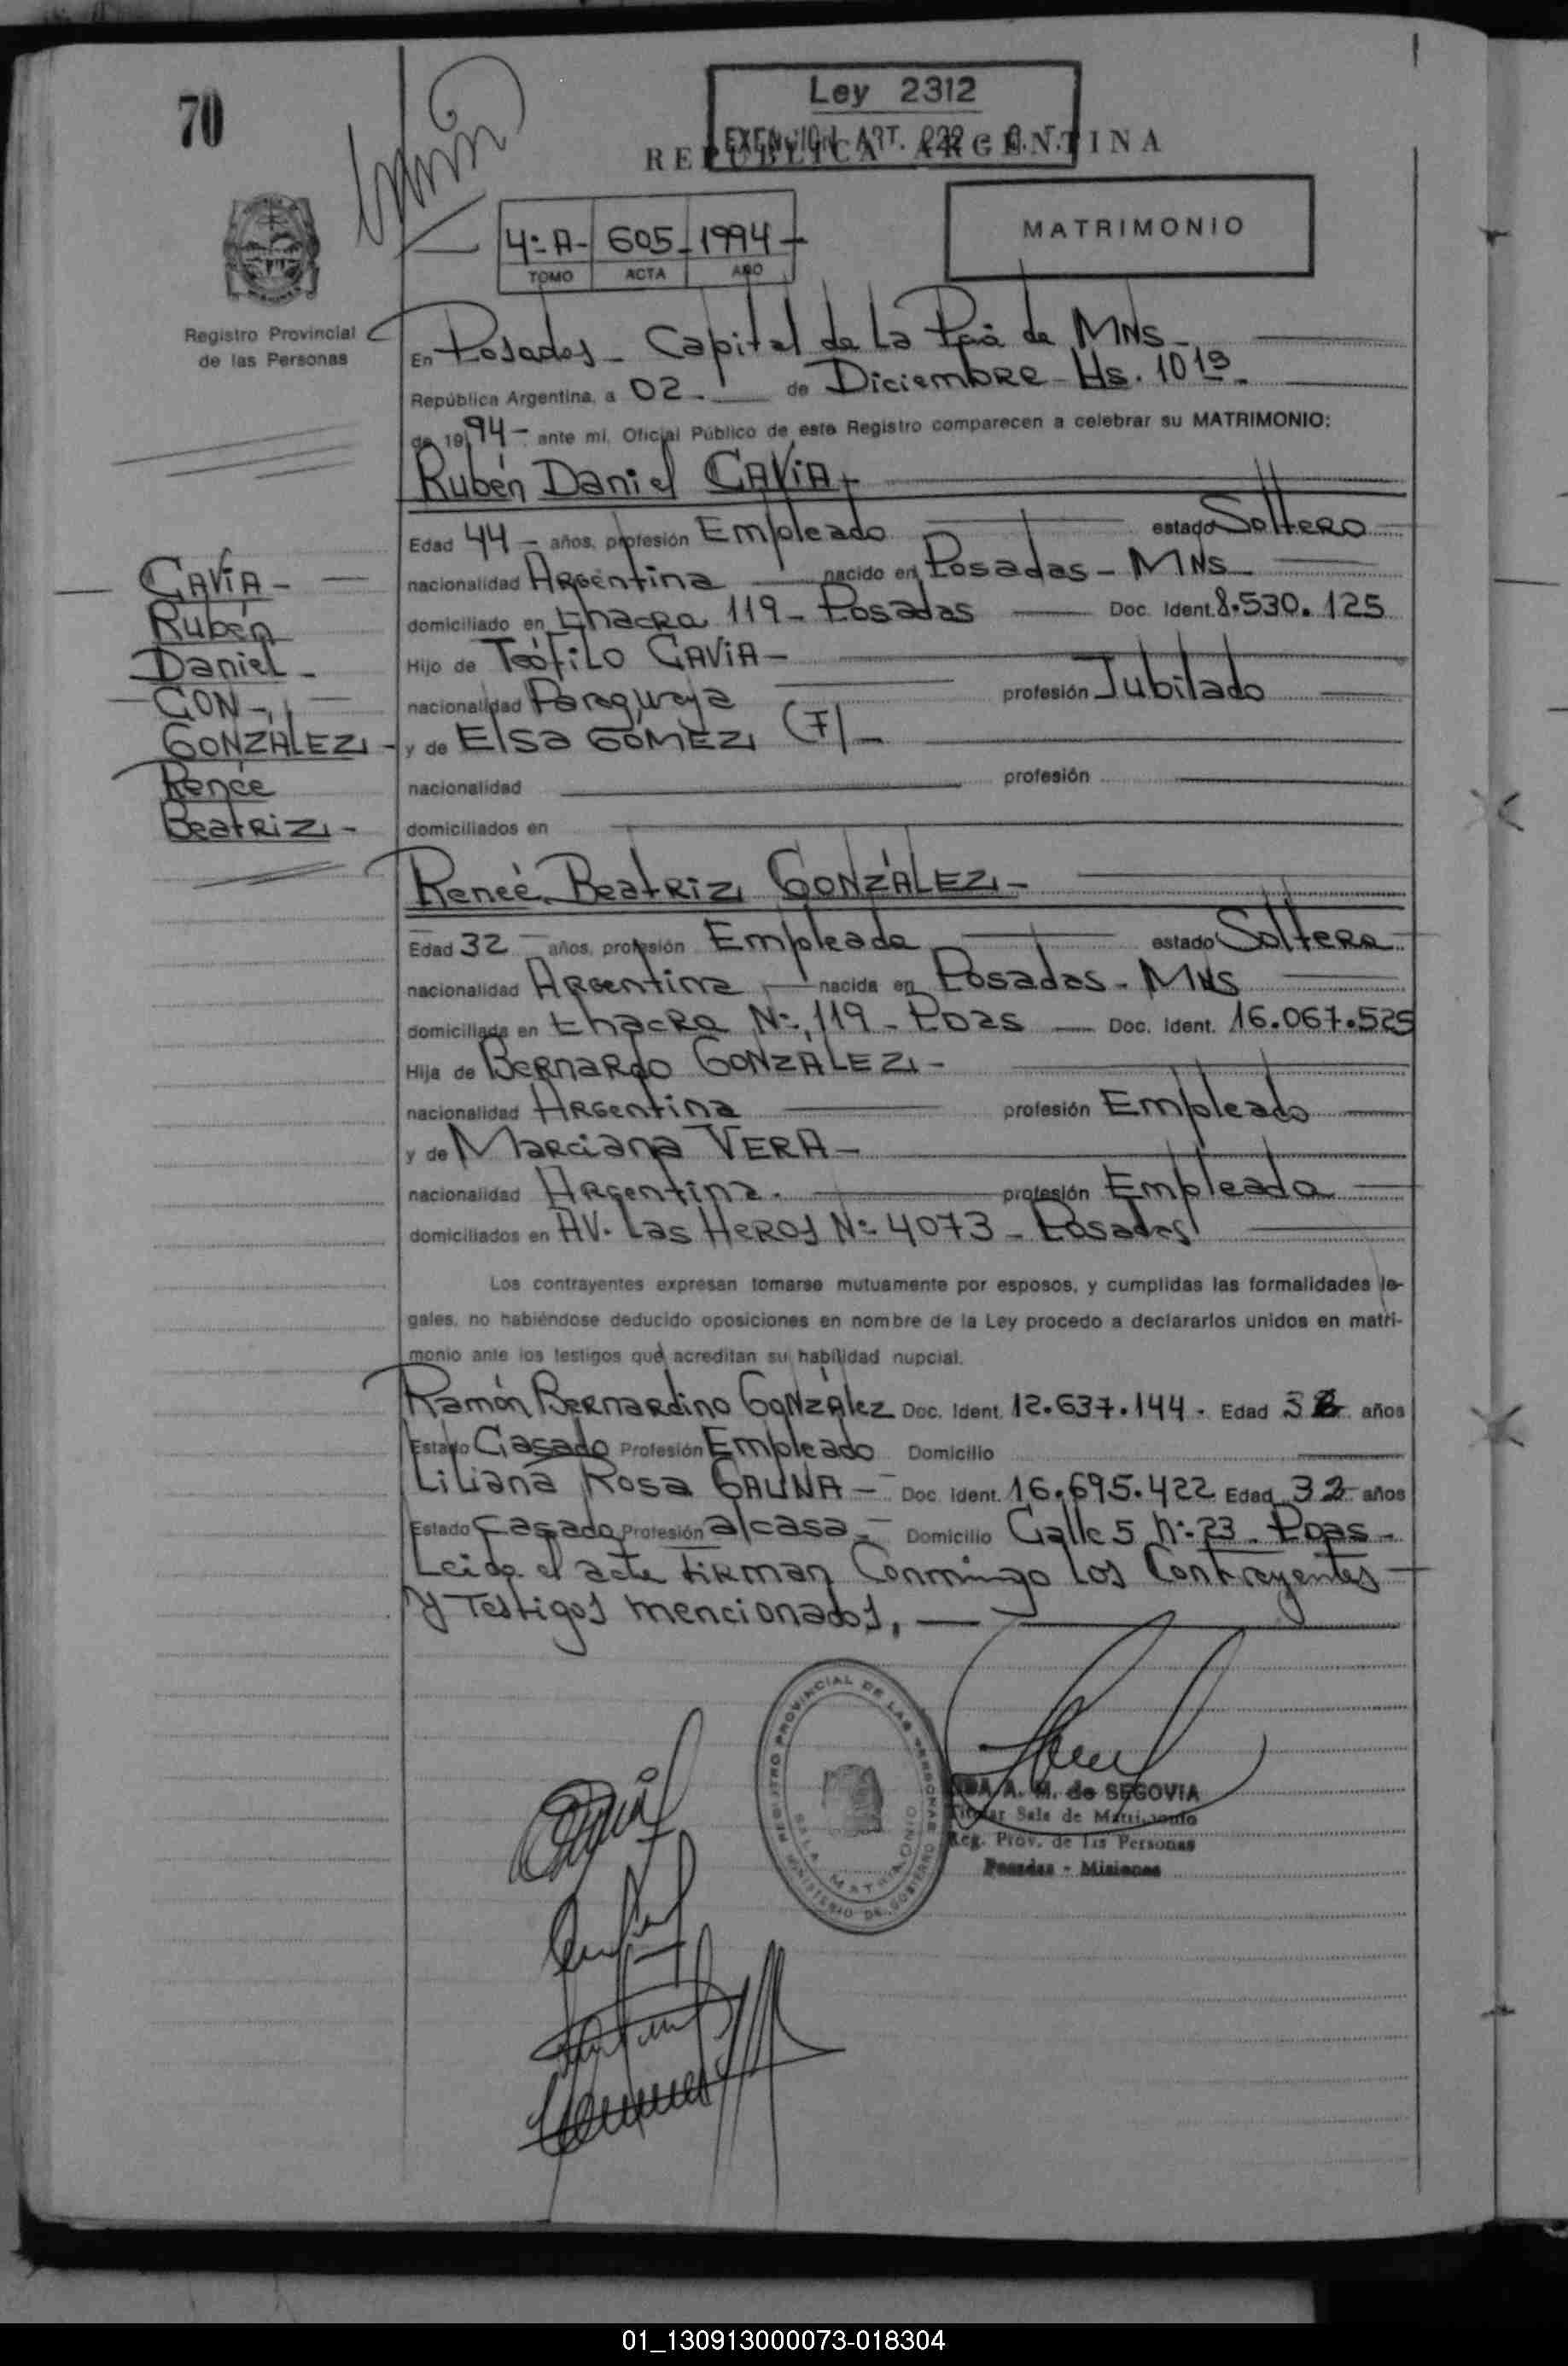 70
Ley 2312
EXENCION ART. 222 - C. F.
REPUBLICA ARGENTINA
4º A- 605- 1994-
TOMO ACTA AÑO
MATRIMONIO
Registro Provincial
de las Personas
En Posadas - Capital de La Pciā de MNS-
República Argentina, a 02- de Diciembre Hs. 10 15-
de 1994- ante mi, Oficial Público de este Registro comparecen a celebrar su MATRIMONIO:
Rubén Daniel GAVIA-
Edad 44- años, profesión Empleado estado Soltero
nacionalidad Argentina nacido en Posadas - MNS-
domiciliado en Chacra 119- Posadas Doc. Ident. 8.530.125
Hijo de Teófilo GAVIA-
nacionalidad Paraguaya profesión Jubilado
y de Elsa GOMEZ (F)-
nacionalidad profesión
domiciliados en
GAVIA-
Rubén
Daniel-
CON-
GONZALEZ-
Renée
Beatriz-
Renée Beatriz GONZALEZ-
Edad 32 años, profesión Empleada estado Soltera
nacionalidad Argentina nacida en Posadas - MNS
domiciliada en Chacra Nº 119 - Pdas Doc. Ident. 16.067.525
Hija de Bernardo GONZALEZ-
nacionalidad Argentina profesión Empleado
y de Marciana VERA-
nacionalidad Argentina. profesión Empleada
domiciliados en AV. Las Heros Nº 4073 - Posadas
Los contrayentes expresan tomarse mutuamente por esposos, y cumplidas las formalidades le-
gales, no habiéndose deducido oposiciones en nombre de la Ley procedo a declararlos unidos en matri-
monio ante los testigos que acreditan su habilidad nupcial.
Ramón Bernardino González Doc. Ident. 12.637.144. Edad 38 años
Estado Casado Profesión Empleado Domicilio
Liliana Rosa GAUNA- Doc. Ident. 16.695.422 Edad 32 años
Estado Casada Profesión a/casa- Domicilio Calle 5 Nº 23 - Pdas-
Leida el acta firman Conmingo los Contrayentes
y Testigos mencionados,
REGISTRO PROVINCIAL DE LAS PERSONAS
SALA MATRIMONIO
MINISTERIO DE GOBIERNO
A. M. de SEGOVIA
Titular Sala de Matrimonio
Reg. Prov. de las Personas
Posadas - Misiones
01_130913000073-018304